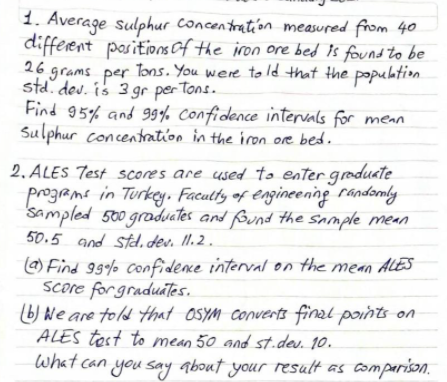 1. Average sulphur concentration measured from 40
different positions of the iron ore bed is found to be
26 grams per tons. You were told that the population
std. dev. is 3 gr per tons.
Find 95% and 99% confidence intervals for mean
sulphur concentration in the iron ore bed.
2. ALES Test scores are used to enter graduate
programs in Turkey. Faculty of engineering randomly
sampled 500 graduates and found the sample mean
50.5 and std. dev. 11.2.
(a) Find 99% confidence interval on the mean ALES
score for graduates.
(b) We are told that OSYM converts final points on
ALES test to mean 50 and st. dev. 10.
What can you say about your result as comparison.